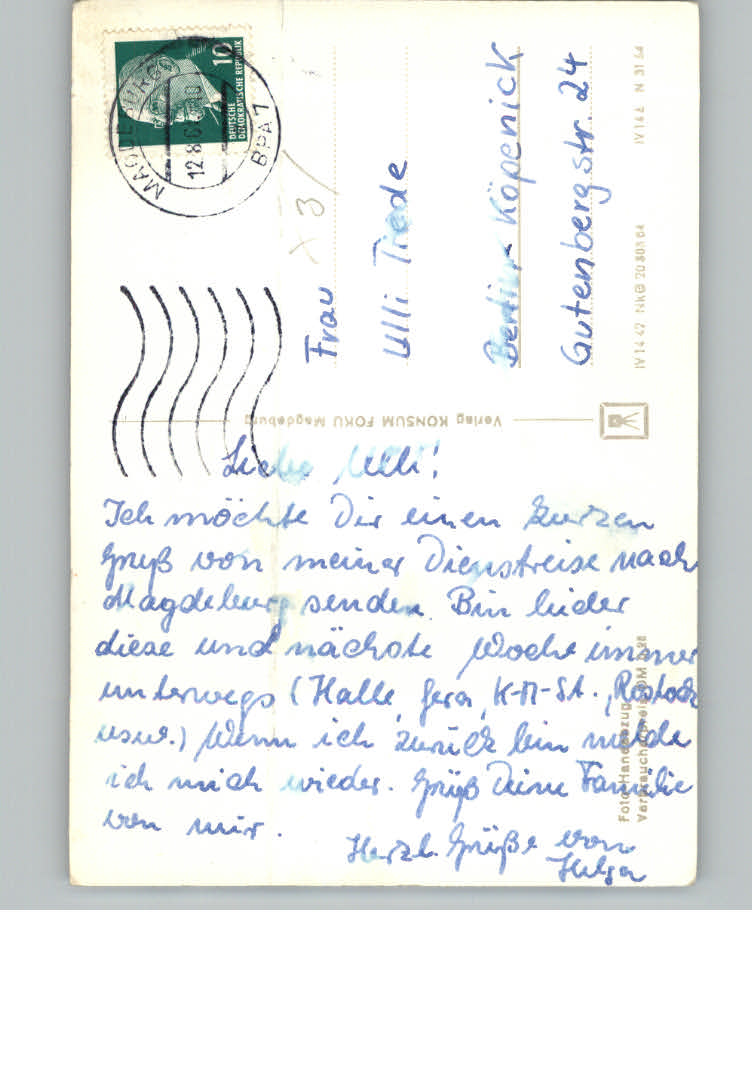 MAGDEBURG
BPA 7
12.8.6
10
DEUTSCHE
DEMOKRATISCHE REPUBLIK
Frau
Ulli Tiede
Berlin-Köpenick
Gutenbergstr. 24
IV 14 42 NkG 20 808 64
IV 16 6 N 31 64
Verlag KONSUM FOKU Magdeburg
Liebe Ulli!
Ich möchte Dir einen kurzen
Gruß von meiner Dienstreise nach
Magdeburg senden. Bin leider
diese und nächste Woche immer
unterwegs (Halle, Gera, K-M-St., Rostock
usw.) Wenn ich zurück bin melde
ich mich wieder. Grüß Deine Familie
von mir.
Herzl. Grüße von
Helga
Foto-Handabzug
Verbraucherpreis DM